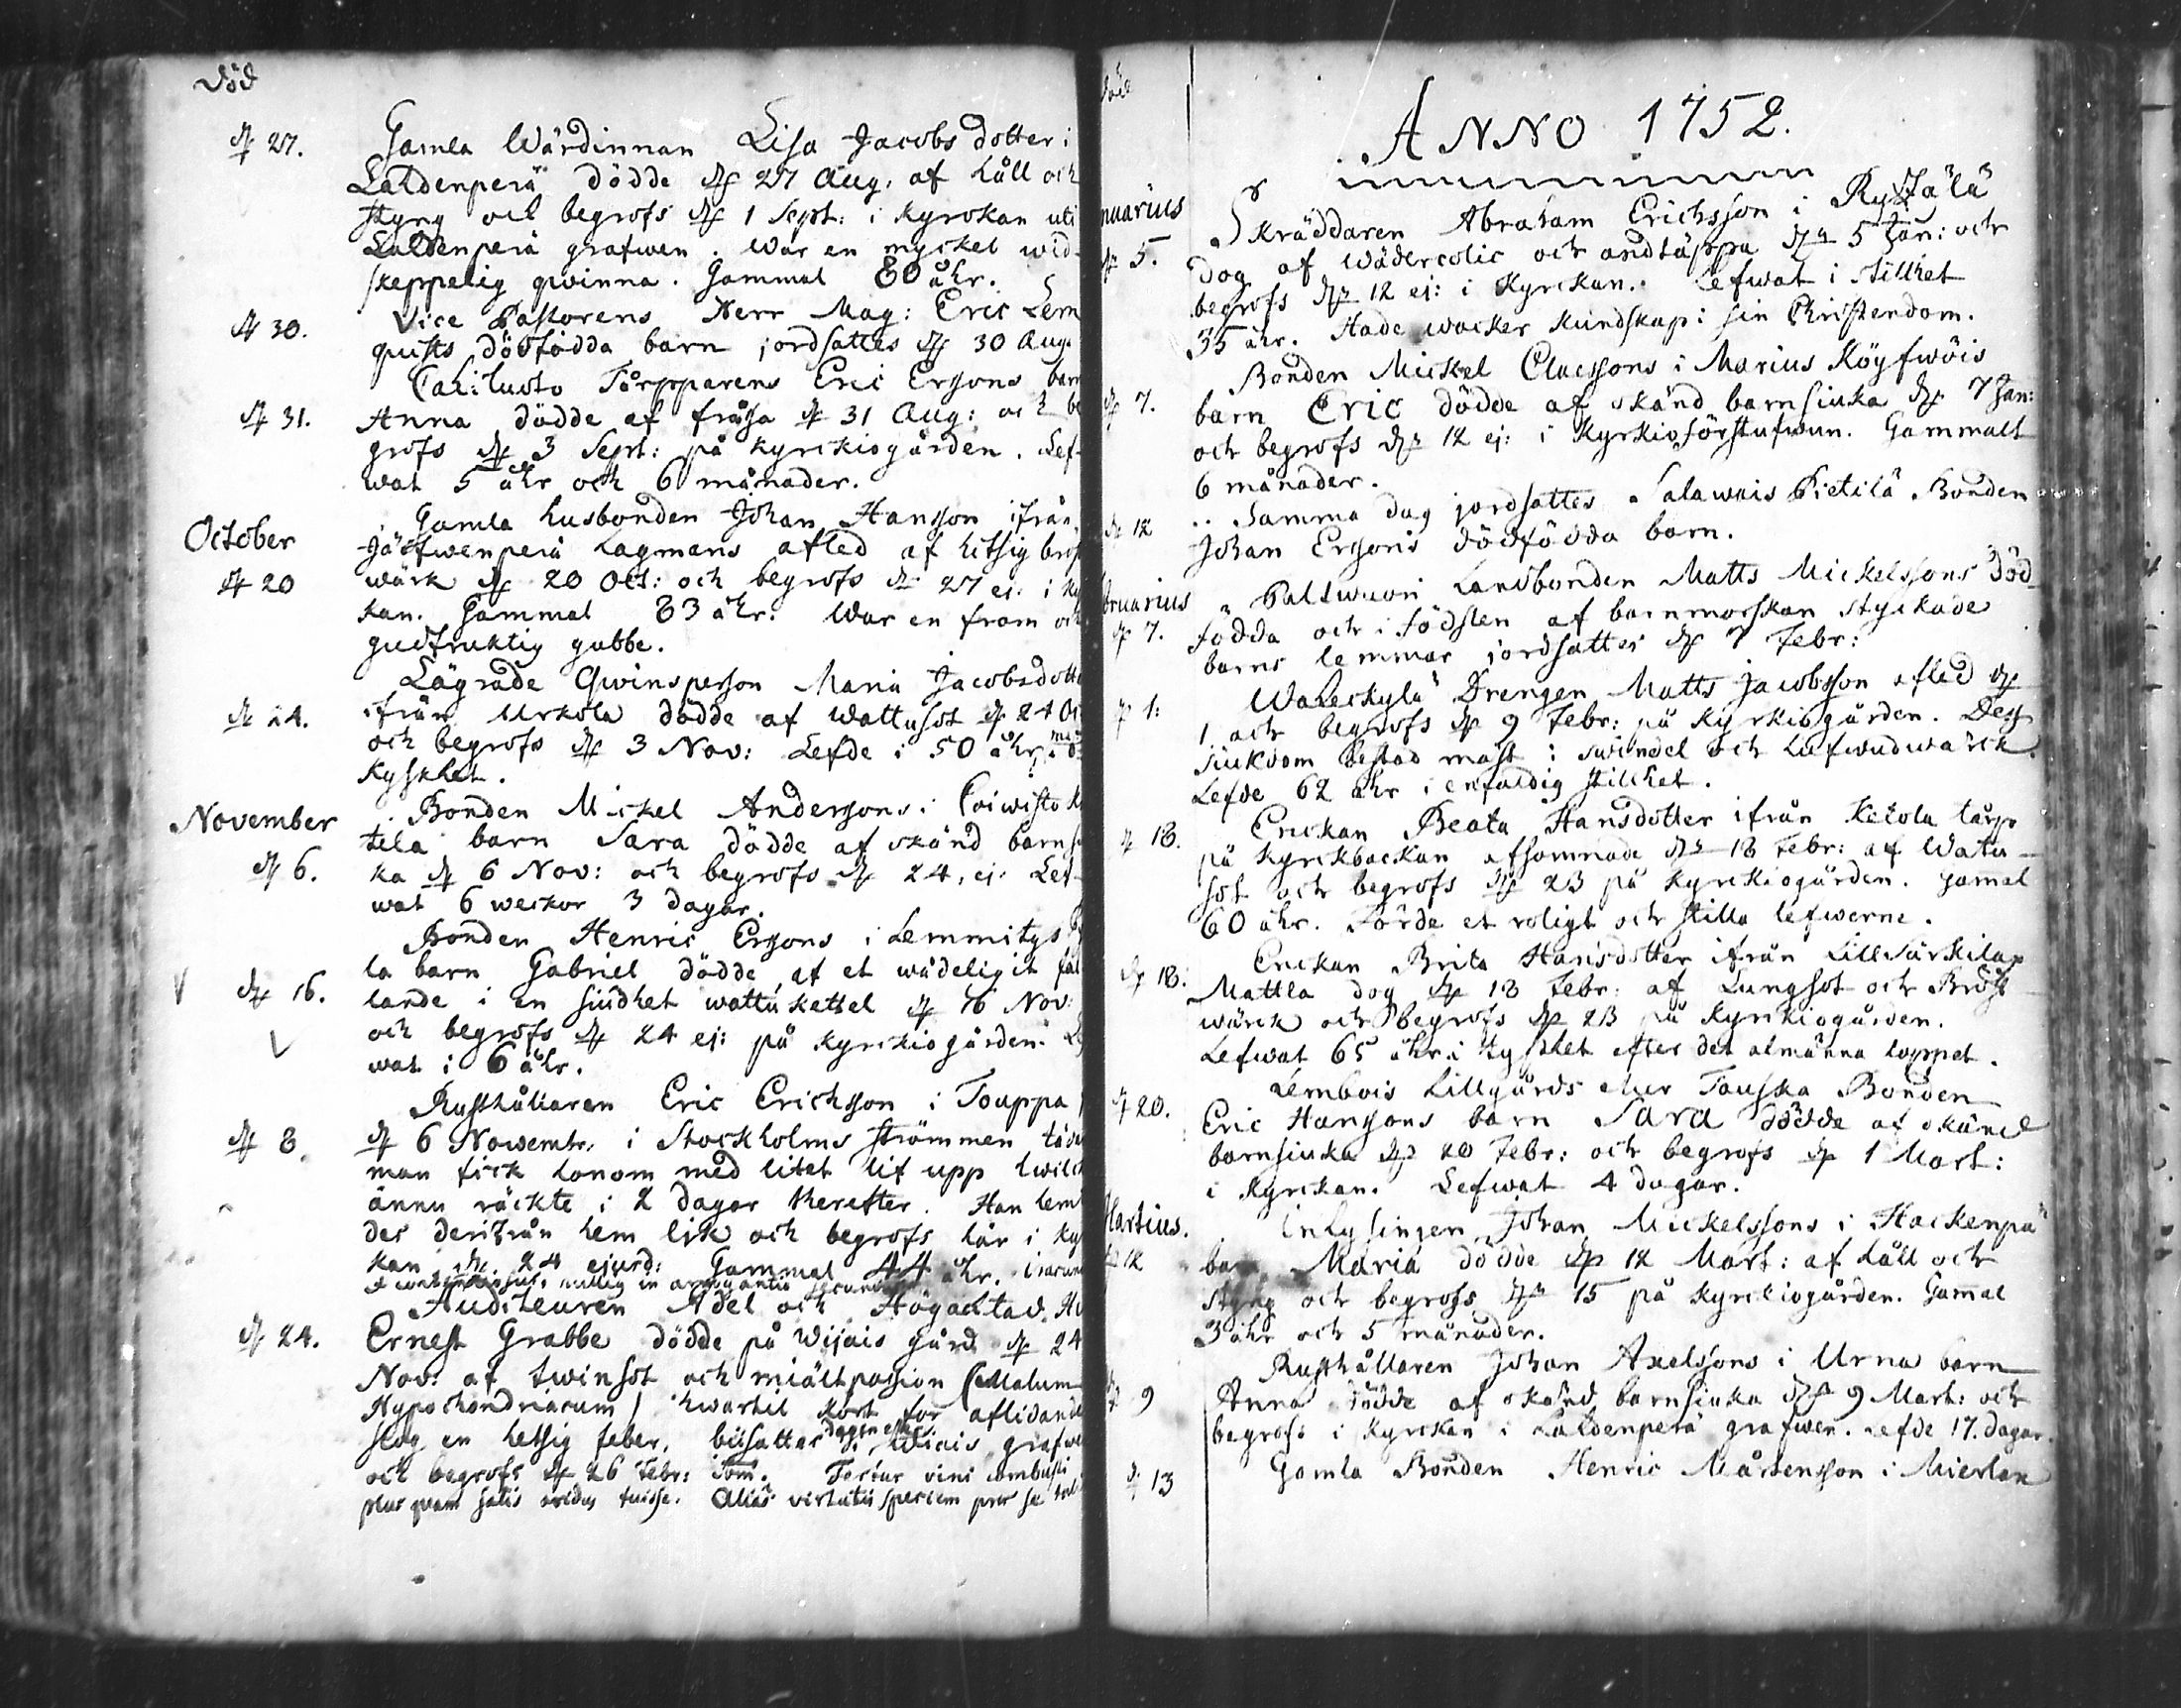 Död
d. 27. Gamla Wärdinnan Lisa Jacobs dotter i
Laldenperä dödde d. 27 Aug: af håll och
styng och begrofs d. 1 Sept: i Kyrckan uti
Laldenperä grafwen. War en myckel wid-
skeppelig qwinna. Gammal 80 åhr.
d. 30. Vice Pastorens Herr Mag: Eric Lem
quists dödfödda barn jordsattes d. 30 Aug.
Torpparens Eric Ersons barn
d. 31. Anna dödde af fråsa d. 31 Aug: och be
grofs d. 3 Sept: på kyrckiogården. Lef-
wat 5 åhr och 6 månader.
October Gamla husbonden Johan Hansson ifrån
Järfwenperä Lagmans afled af hitsig bröst
d. 20 wärk d. 20 Oct: och begrofs d. 27 ej: i Ky
kan. Gammal 83 åhr. War en from och
gudfruktig gubbe.
Lägrade Qwinsperson Maria Jacobsdotte
d. 24. ifrån Urkola dödde af wattusot d. 24 Oc
och begrofs d. 3 Nov: Lefde i 50 åhr i
Kyskhet.
November Bonden Mickel Anderssons i Coiwisto
tela barn Sara dödde af okänd barns
d. 6. ka d. 6 Nov: och begrofs d. 24. ej: Lef-
wat 6 weckor 3 dagar.
Bonden Henric Ersons i Lemmitys
la barn Gabriel dödde af et wådeligit fal
d. 16. lande i en siudhet wattu kettel d. 16 Nov:
och begrofs d. 24 ej: på kyrckiogården.
wat i 6 åhr.
Rusthållaren Eric Erichsson i Touppa
d. 8. d. 6 Novembr: i Stockholms strömmen
man fick honom med litet lif upp hwilck
ännu räckte i 2 dagar therefter. Han
des derifrån hem lijk och begrofs här i Ky
kan d. 24 ejusd: Gammal 44 åhr.
Auditeuren Adel och Högachtad. H
d. 24. Ernest Grabbe dödde på Wijais gård d. 24
Nov: af twinsot och miältpasion (Malum
Hypochondriacum) hwartil kort för aflidande
slog en hetsig feber, bisattes dagen efter i Wiais grafwe
och begrofs d. 26 Febr: Tom. Fertur vini combusti
plus quam satis avidus fuisse. Alias virtutis speciem præ se tul
Död
ANNO 1752.
nuarius Skräddaren Abraham Erichsson i Rystälä
d. 5. dog af wädercolic och andtäppa d. 5 Jan: och
begrofs d. 12 ej: i Kyrckan. Lefwat i stillhet
35 åhr. Hade wacker kundskap i sin Christendom.
Bonden Mickel Claessons i Marius Köyfwöis
d. 7. barn Eric dödde af okänd barnsiuka d. 7 Jan:
och begrofs d. 12 ej: i Kyrkioförstufwun. Gammalt
6 månader.
Samma dag jordsattes Salawais Pietilä Bonden
d. 12 Johan Ersons dödfödda barn.
bruarius Paltwuori Landbonden Matts Mickelssons död-
d. 7. födda och i födslen af barnmorskan styckade
barns lemmar jordsattes d. 7 Febr:
Waheskylä Drengen Matts Jacobsson afled d.
d. 1: 1 och begrofs d. 9 Febr: på Kyrkiogården. Dess
siukdom bestod mäst i swindel och hufwudwärck.
Lefde 62 åhr i enfaldig stillhet.
Enckan Beata Hansdotter ifrån Ketola tårp
d. 18. på Kyrckbackan afsomnade d. 18 Febr: af Watu-
sot och begrofs d. 23 på kyrckiogården. gamal
60 åhr. Förde et roligt och stilla lefwerne.
Enckan Brita Hansdotter ifrån Lill Särkilax
d. 18. Mattla dog d. 18 Febr: af Lungsot och Bröst-
wärck och begrofs d. 23 på Kyrkiogården.
Lefwat 65 åhr i Kyskhet efter det almänna loppet.
Lembois Lillgårds eller Touska Bonden
d. 20. Eric Hanssons barn Sara dödde af okänd
barnsiuka d. 20 Febr: och begrofs d. 1 Mart:
i Kyrckan. Lefwat 4 dagar.
Martius. Inhysingen Johan Mickelssons i Hackenpä
d. 12 barn Maria dödde d. 12 Mart: af håll och
styng och begrofs d. 15 på kyrckiogården. Gamal
3 åhr och 5 månader.
Rusthållaren Johan Axelssons i Urna barn
d. 9 Anna dödde af okänd barnsiuka d. 9 Mart: och
begrofs i Kyrckan i Laldenperä grafwen. Lefde 17. dagar.
d. 13 Gamla Bonden Henric Mårtensson i Mierlax